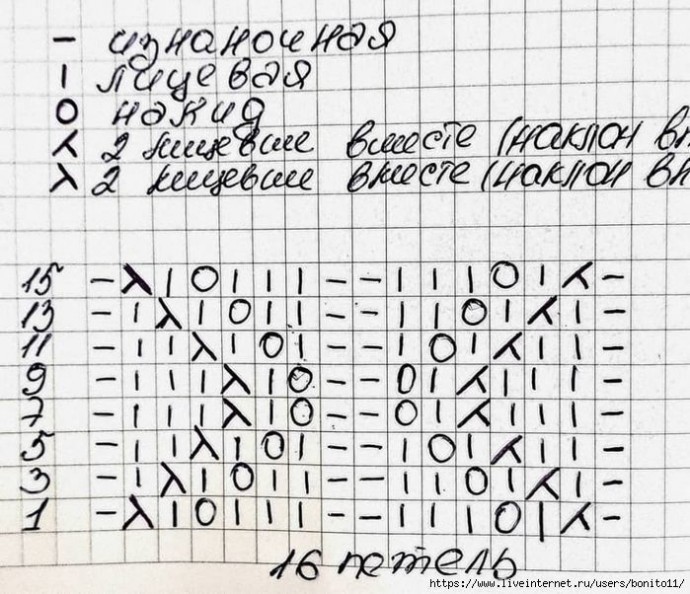 – изнаночная
| лицевая
O накид
⋌ 2 лицевые вместе (наклон
λ 2 лицевые вместе (наклон
15 – λ | O | | | – – | | | O | ⋌ –
13 – | λ | O | | – – | | O | ⋌ | –
11 – | | λ | O | – – | O | ⋌ | | –
9 – | | | λ | O – – O | ⋌ | | | –
7 – | | | λ | O – – O | ⋌ | | | –
5 – | | λ | O | – – | O | ⋌ | | –
3 – | λ | O | | – – | | O | ⋌ | –
1 – λ | O | | | – – | | | O | ⋌ –
16 петель
https://www.liveinternet.ru/users/bonito11/